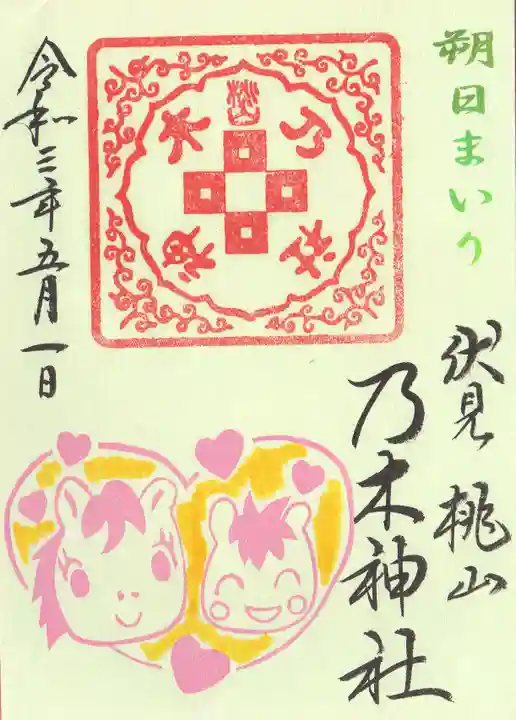 朔日まいり
伏見桃山
乃木神社
令和三年五月一日